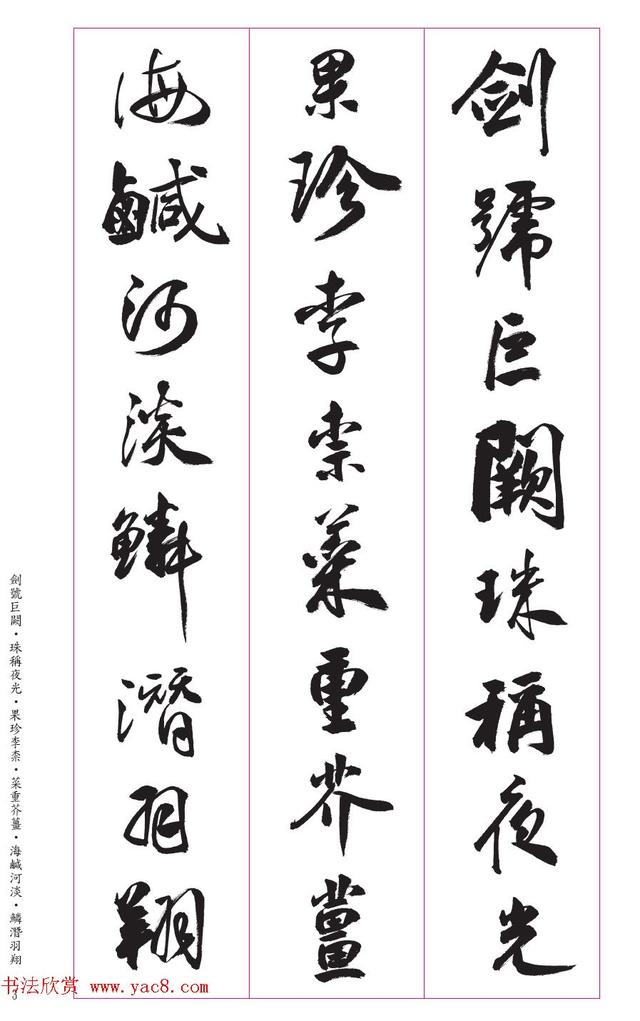 劍號巨闕珠稱夜光
果珍李柰菜重芥薑
海鹹河淡鱗潛羽翔
劍號巨闕·珠稱夜光·果珍李柰·菜重芥薑·海鹹河淡·鱗潛羽翔
书法欣赏 www.yac8.com
3